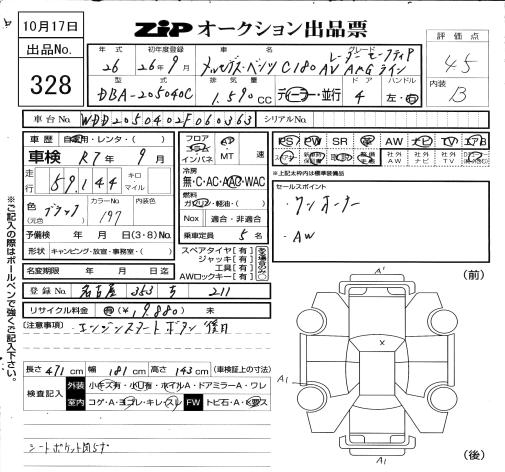 10月17日
ZIP オークション出品票
出品No.
328
年式 初年度登録 車名 グレード 評価点
26 26年9月 メルセデス・ベンツ C180 AV レーダーセーフティP AMGライン 4.5
型式 排気量 ドア ハンドル 内装
DBA-205040C 1,590 CC ディーラー・並行 4 左・右 B
車台No. WDD2050402F060363 シリアルNo.
車歴 自家用・レンタ・( )
車検 R7年9月
走行 59,144 キロ マイル
色(元色) ブラック カラーNo. 197 内装色
予備検 年 月 日(3・8)No.
形状 キャンピング・放宣・事務室・( )
名変期限 年 月 日迄
フロア インパネ MT 速
冷房
無・C・AC・AAC・WAC
燃料
ガソリン・軽油・( )
Nox 適合・非適合
乗車定員 5名
スペアタイヤ[有]
ジャッキ[有]
工具[有]
AWロックキー[有]
PS PW SR 革 AW ナビ TV エアB
社外AW 社外ナビ 社外TV
※上記太枠内は標準装備品
セールスポイント
・ワンオーナー
・AW
登録No. 名古屋 353 ち 211
リサイクル料金 有(¥19,880) 未
(注意事項) エンジンスタートボタン後日
長さ471cm 幅181cm 高さ143cm (車検証上の寸法)
検査記入 外装 小キズ有・小凹有・ホイルA・ドアミラーA・ワレ
室内 コゲ・A・ヨゴレ・キレ・スレ FW トビ石・A・K要ス
シートポケット凹5ヶ
※ご記入の際はボールペンで強くご記入下さい。
(前)
A1
X
A1
A1
(後)